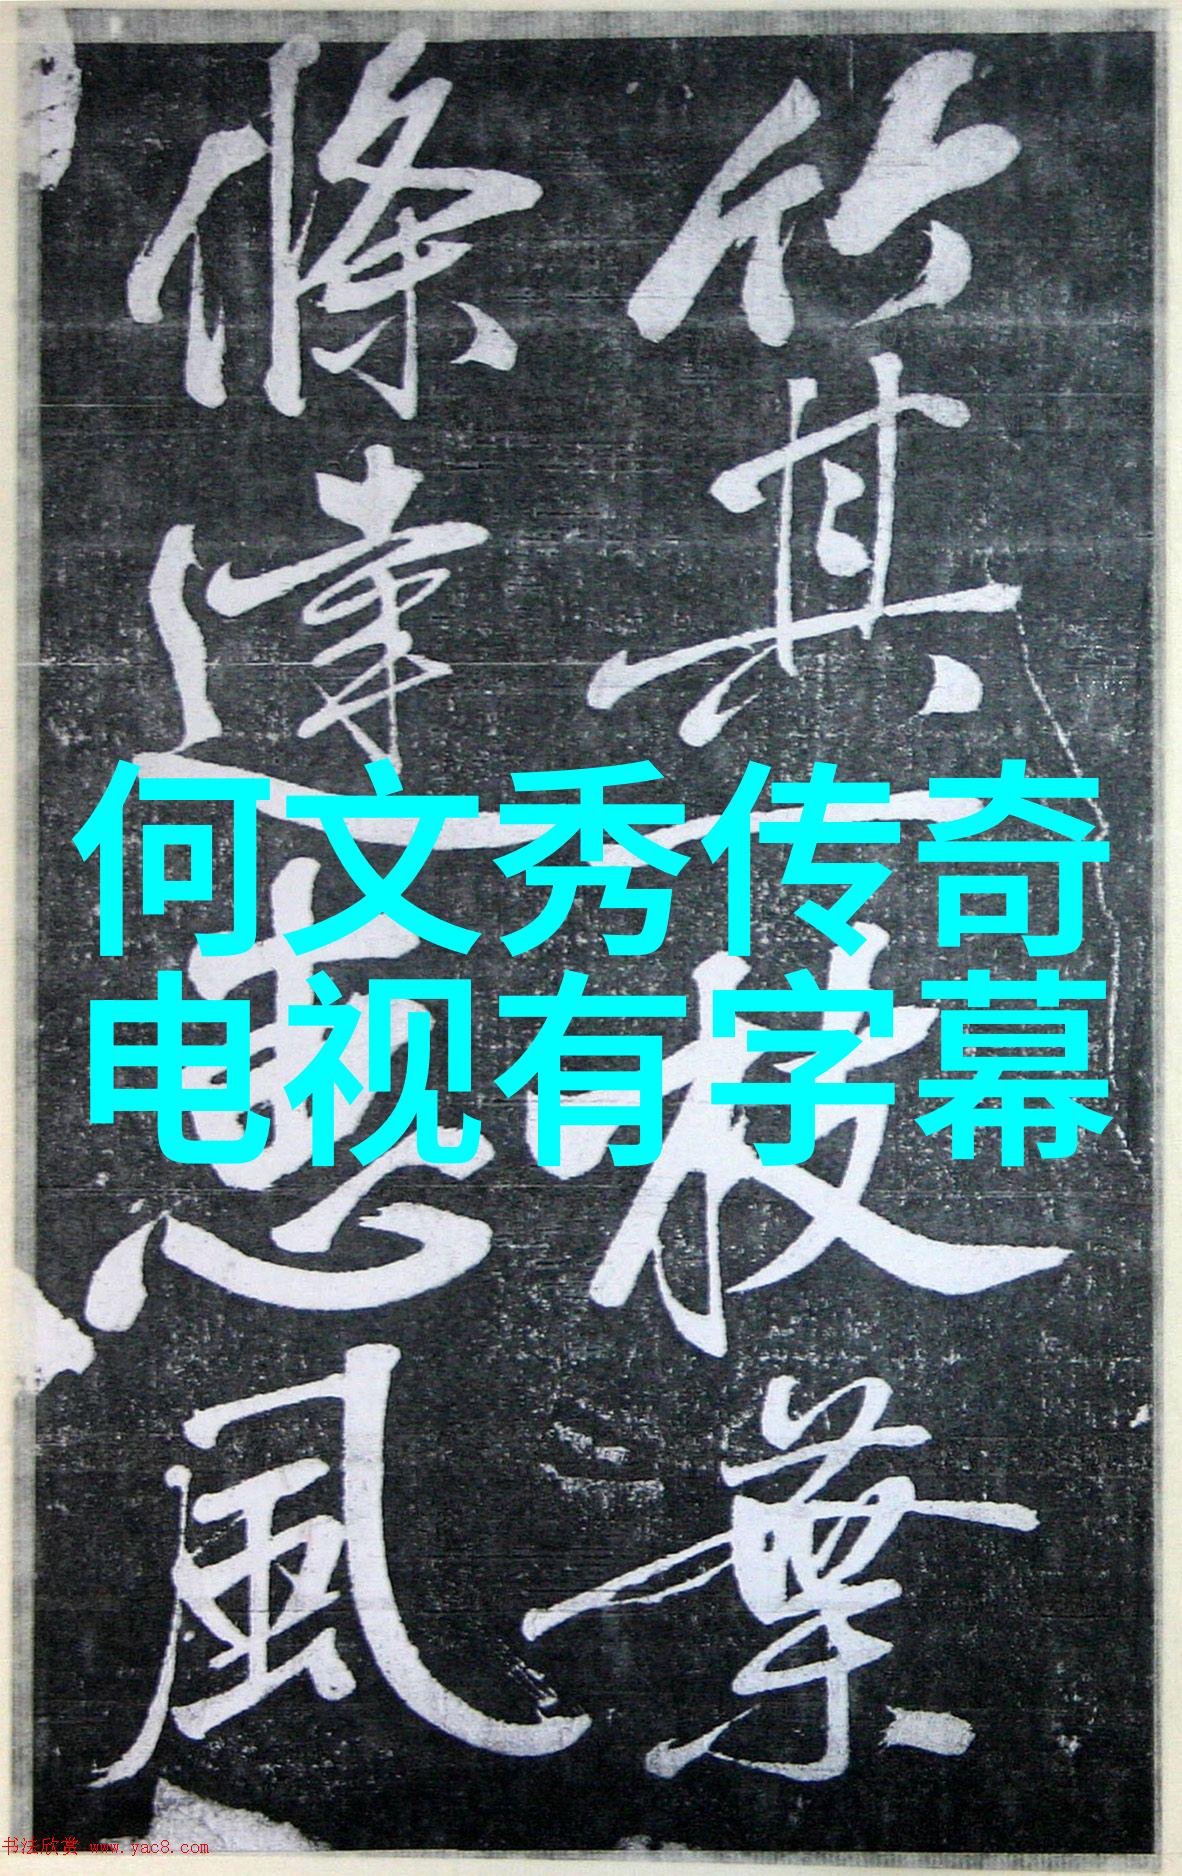 竹其枝葉
條達惠風
何文秀传奇
电视有字幕
书法欣赏 www.yac8.com